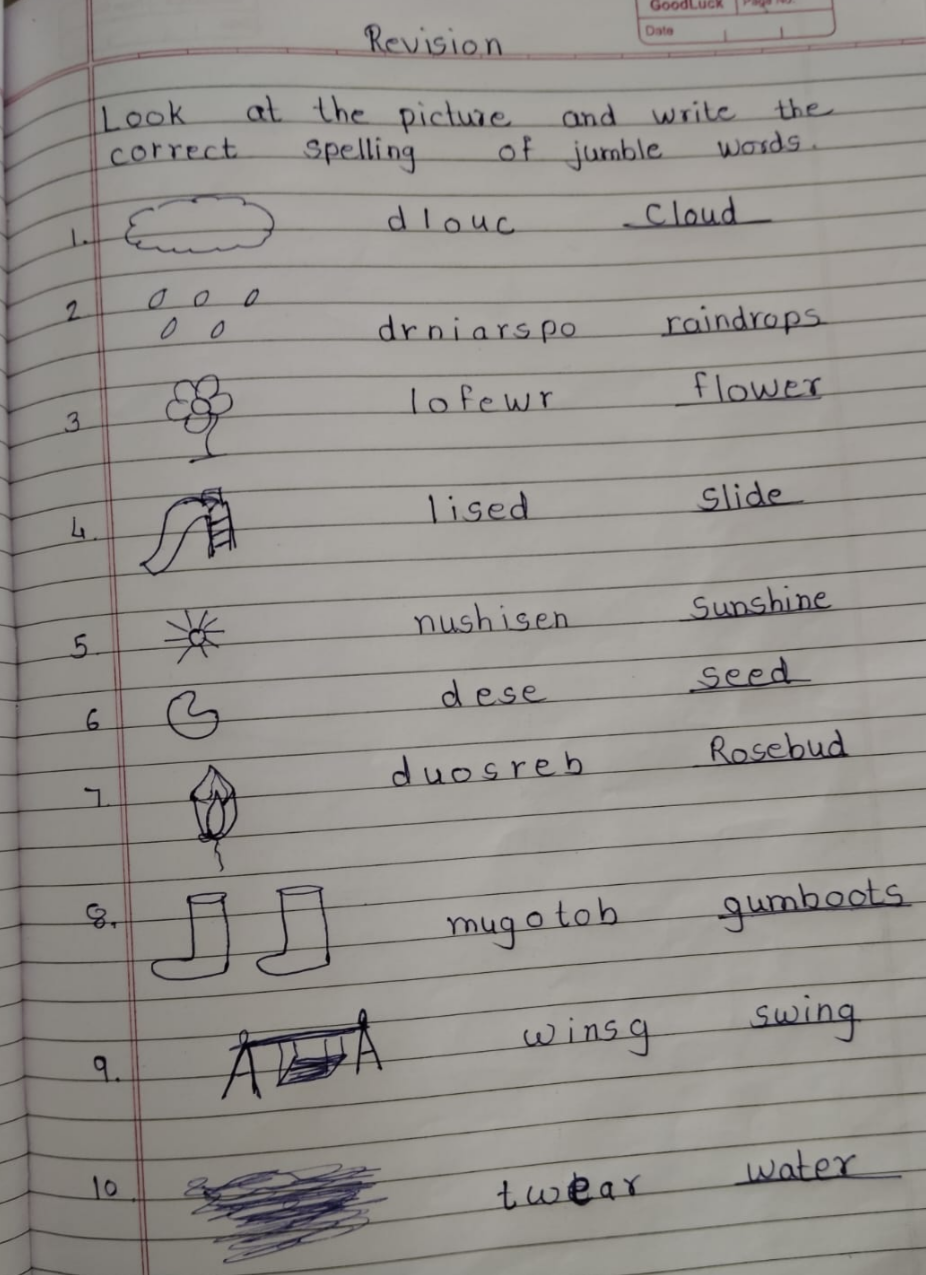 GoodLuck Page No.
Date
Revision
Look at the picture and write the
correct spelling of jumble words.
1. dlouc Cloud
2 drniarspo raindrops
3 lofewr flower
4. lised slide
5. nushisen sunshine
6 dese seed
7. duosreb Rosebud
8. mugotob gumboots
9. winsg swing
10. twear water